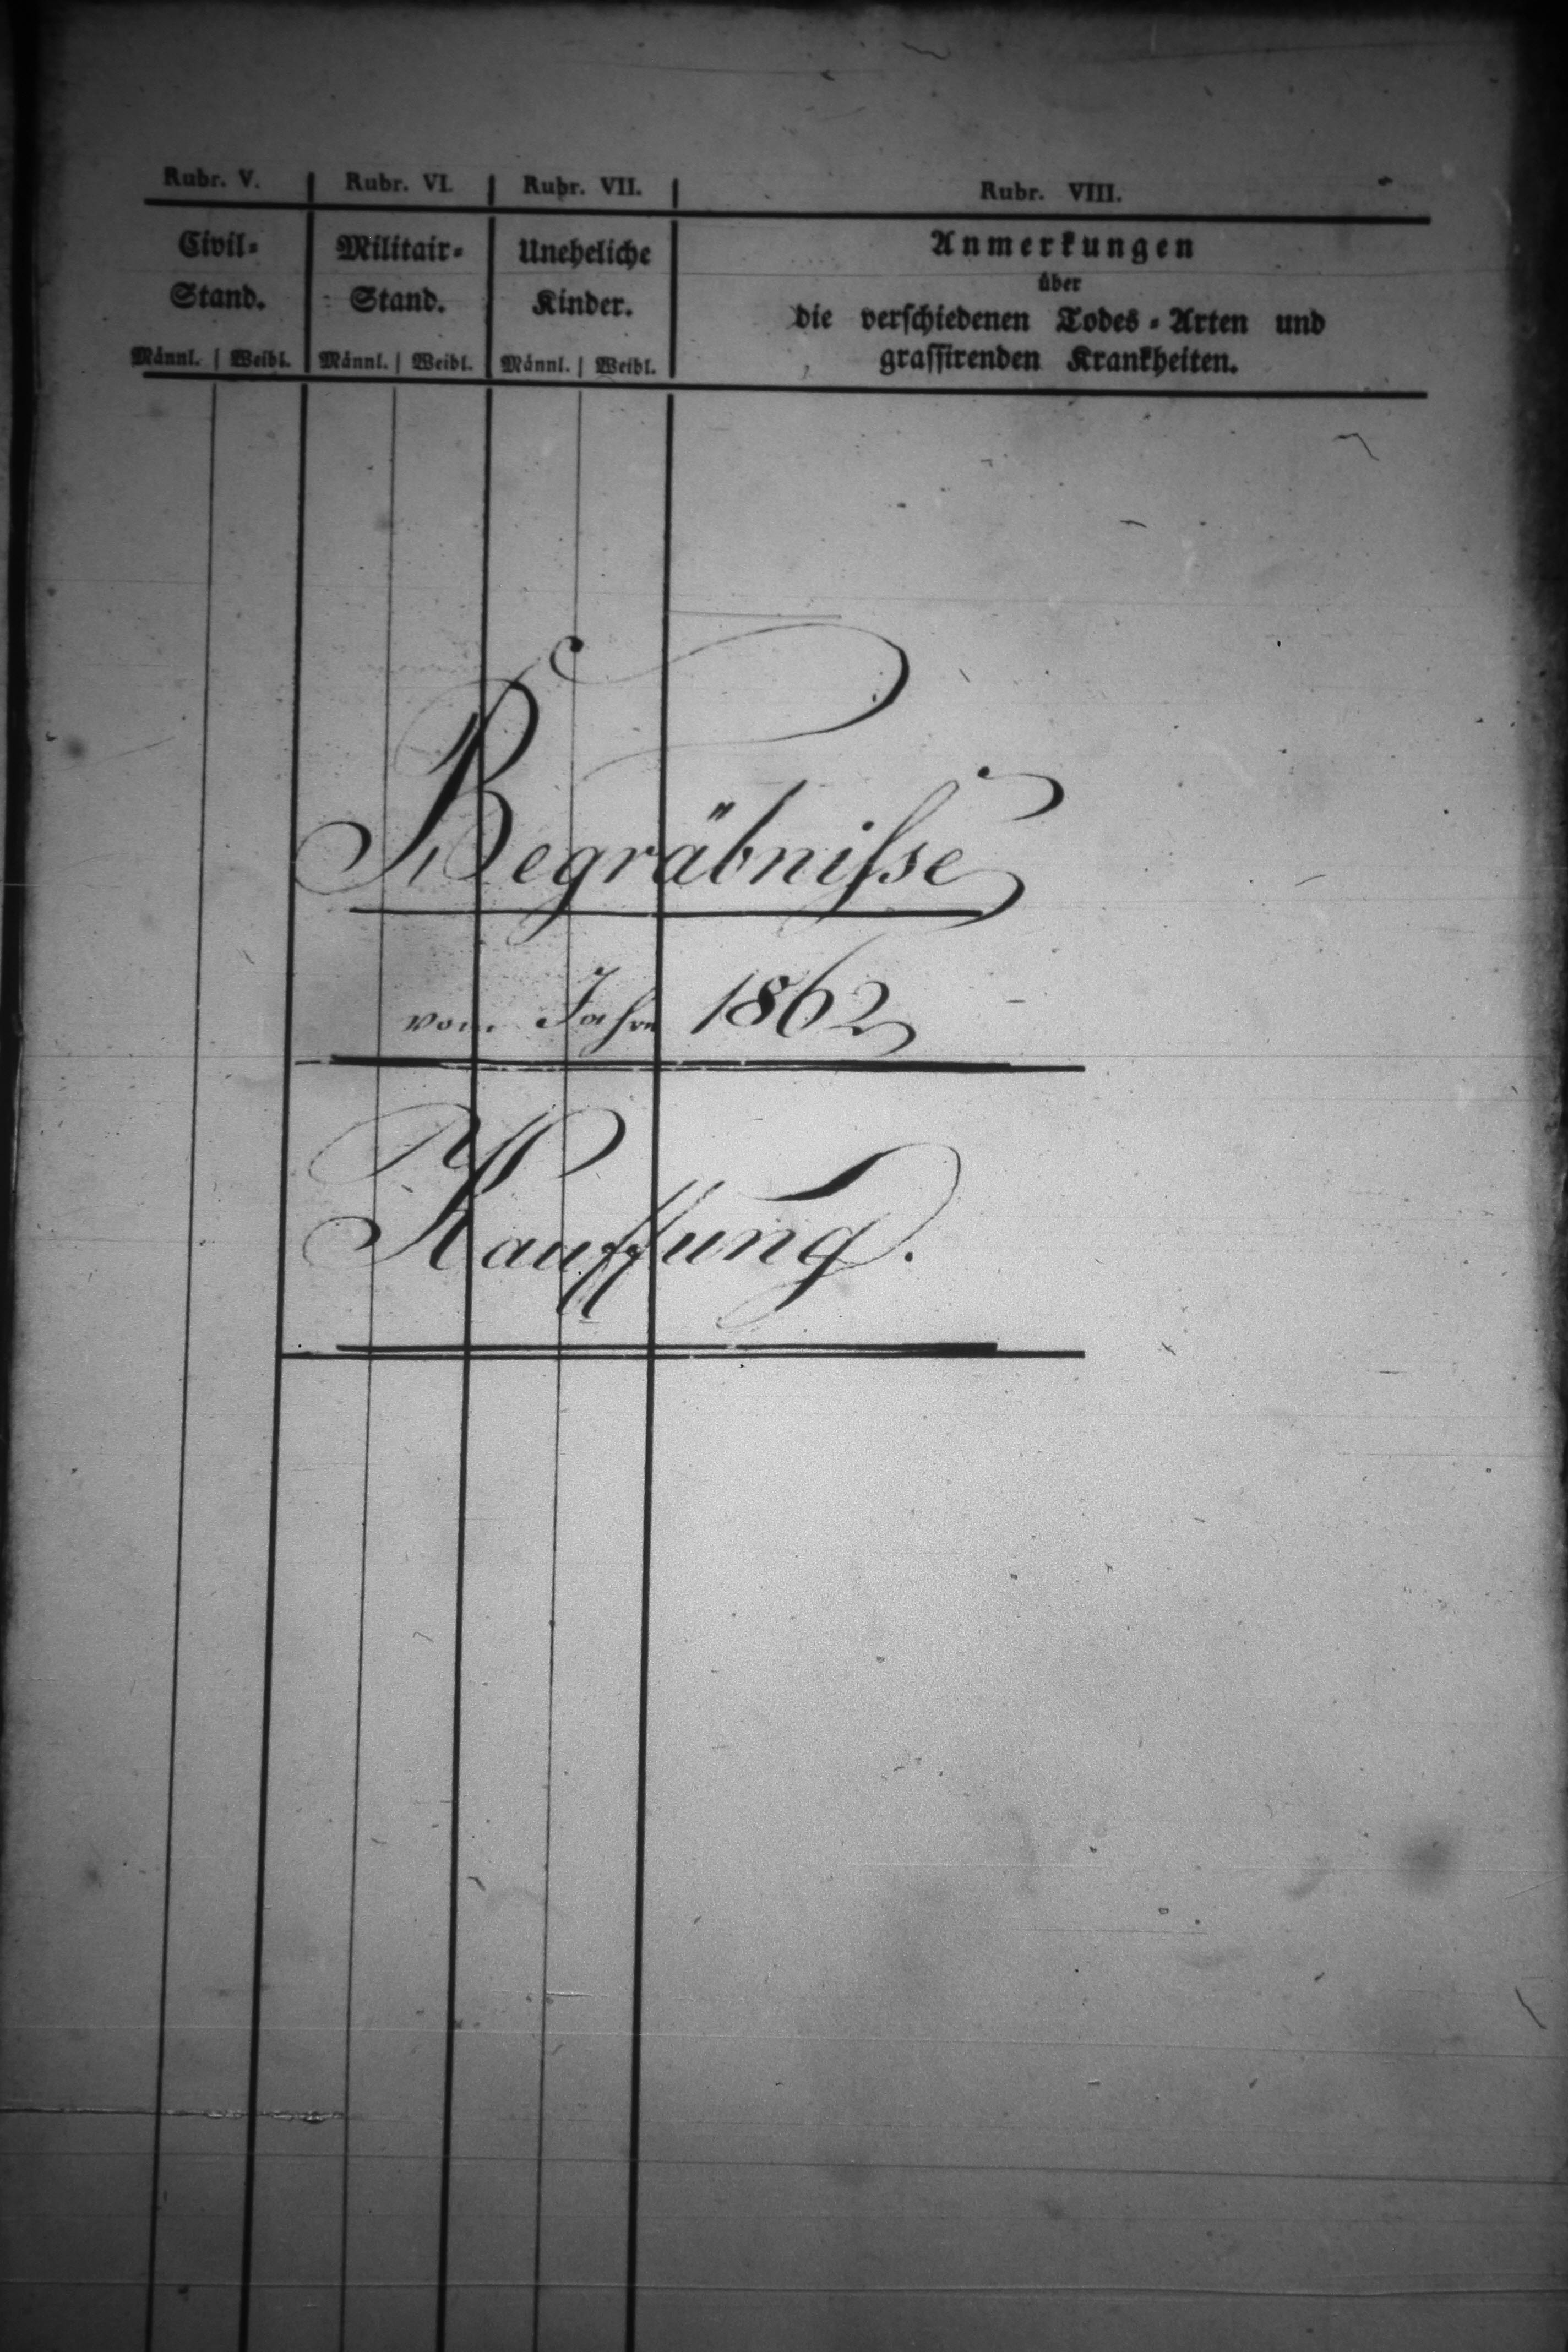 Rubr. V. Rubr. VI. Rubr. VII. Rubr. VIII.
Civil- Militair- Uneheliche Anmerkungen
über
Stand. Stand. Kinder. die verschiedenen Todes-Arten und
Männl. Weibl. Männl. Weibl. Männl. Weibl. grassirenden Krankheiten.
Begräbnisse
vom Jahre 1862
Kauffung.